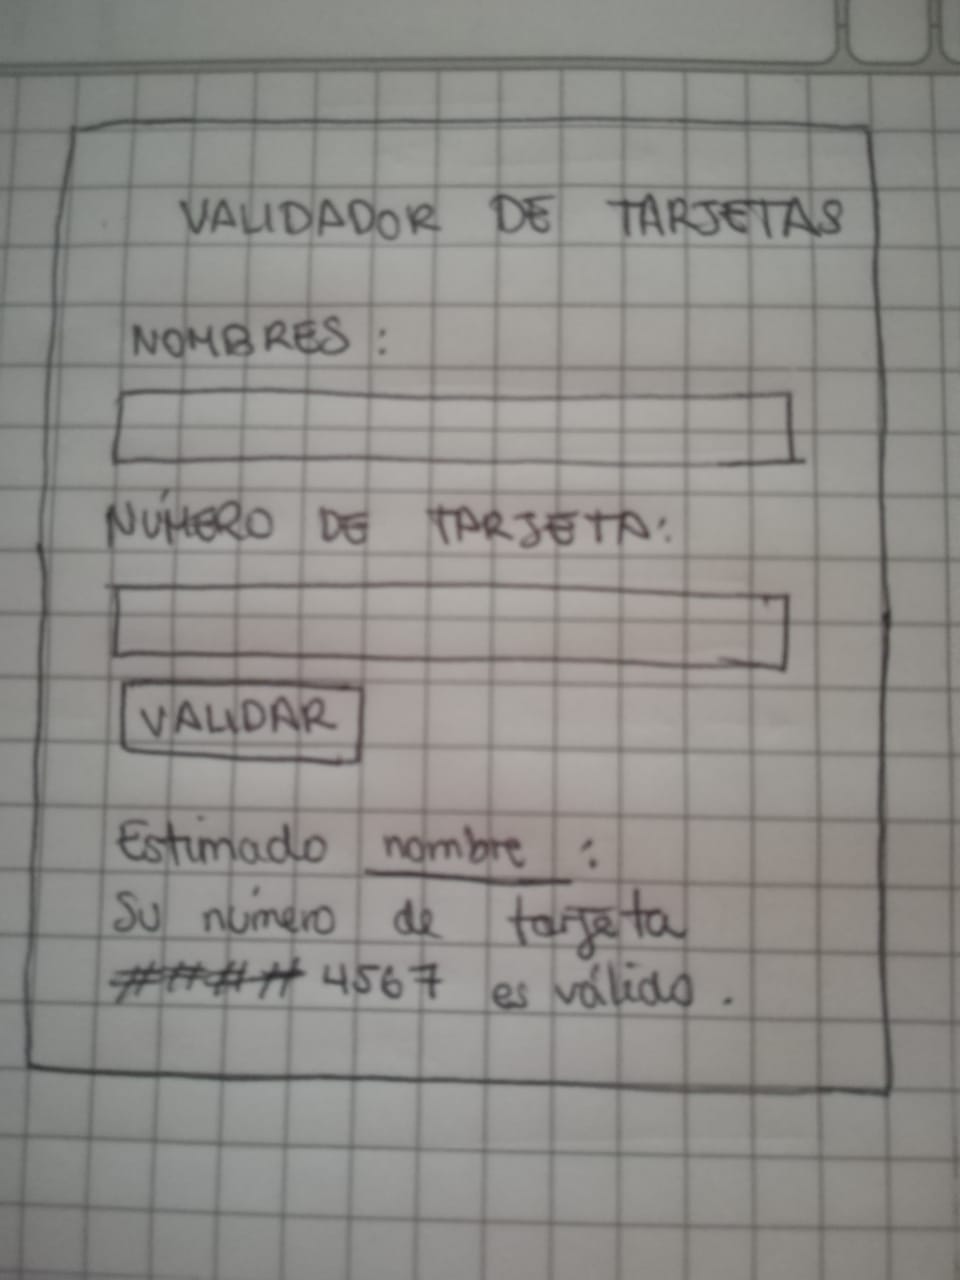 VALIDADOR DE TARJETAS
NOMBRES :
NÚMERO DE TARJETA:
VALIDAR
Estimado nombre :
Su número de tarjeta
#### 4567 es válido.